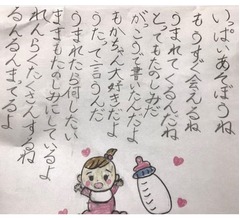 いっぱいあそぼうね
もうすぐ会えるね
うまれてくるんだね
とってもたのしみだ
がっこうで書いたんだよ
もかちゃん大好きだよ
うたって言うんだ
うまれたら何したい
ままもたのしみにしているよ
れんらくたくさんするね
るんるんまてるよ